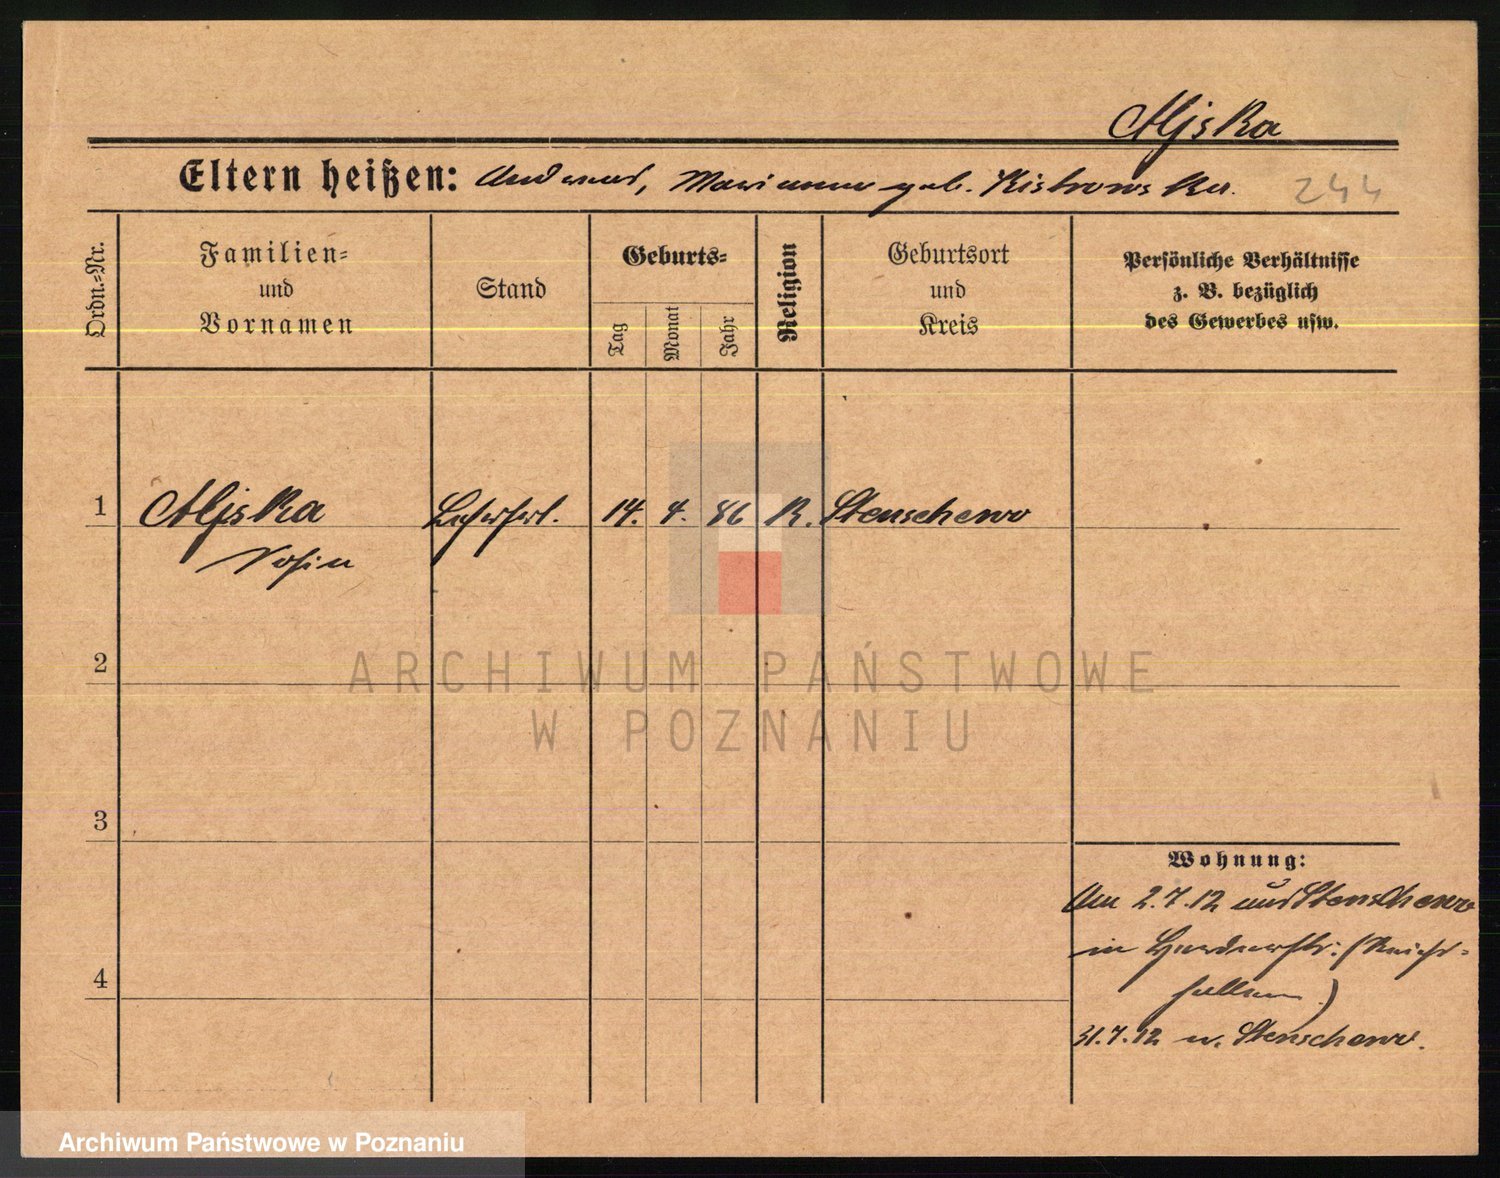 Aljska
Eltern heißen: Andreas, Marianna geb. Kistrowska.
244
Ordn.-Nr.
Familien-
und
Vornamen
Stand
Geburts-
Tag
Monat
Jahr
Religion
Geburtsort
und
Kreis
Persönliche Verhältnisse
z. B. bezüglich
des Gewerbes usw.
1
Aljska
14. 4. 86 R. Stenschewo
2
ARCHIWUM PAŃSTWOWE
W POZNANIU
3
4
Wohnung:
Am 2.7.12 aus Stenschewo
in
31.7.12 n. Stenschewo.
Archiwum Państwowe w Poznaniu